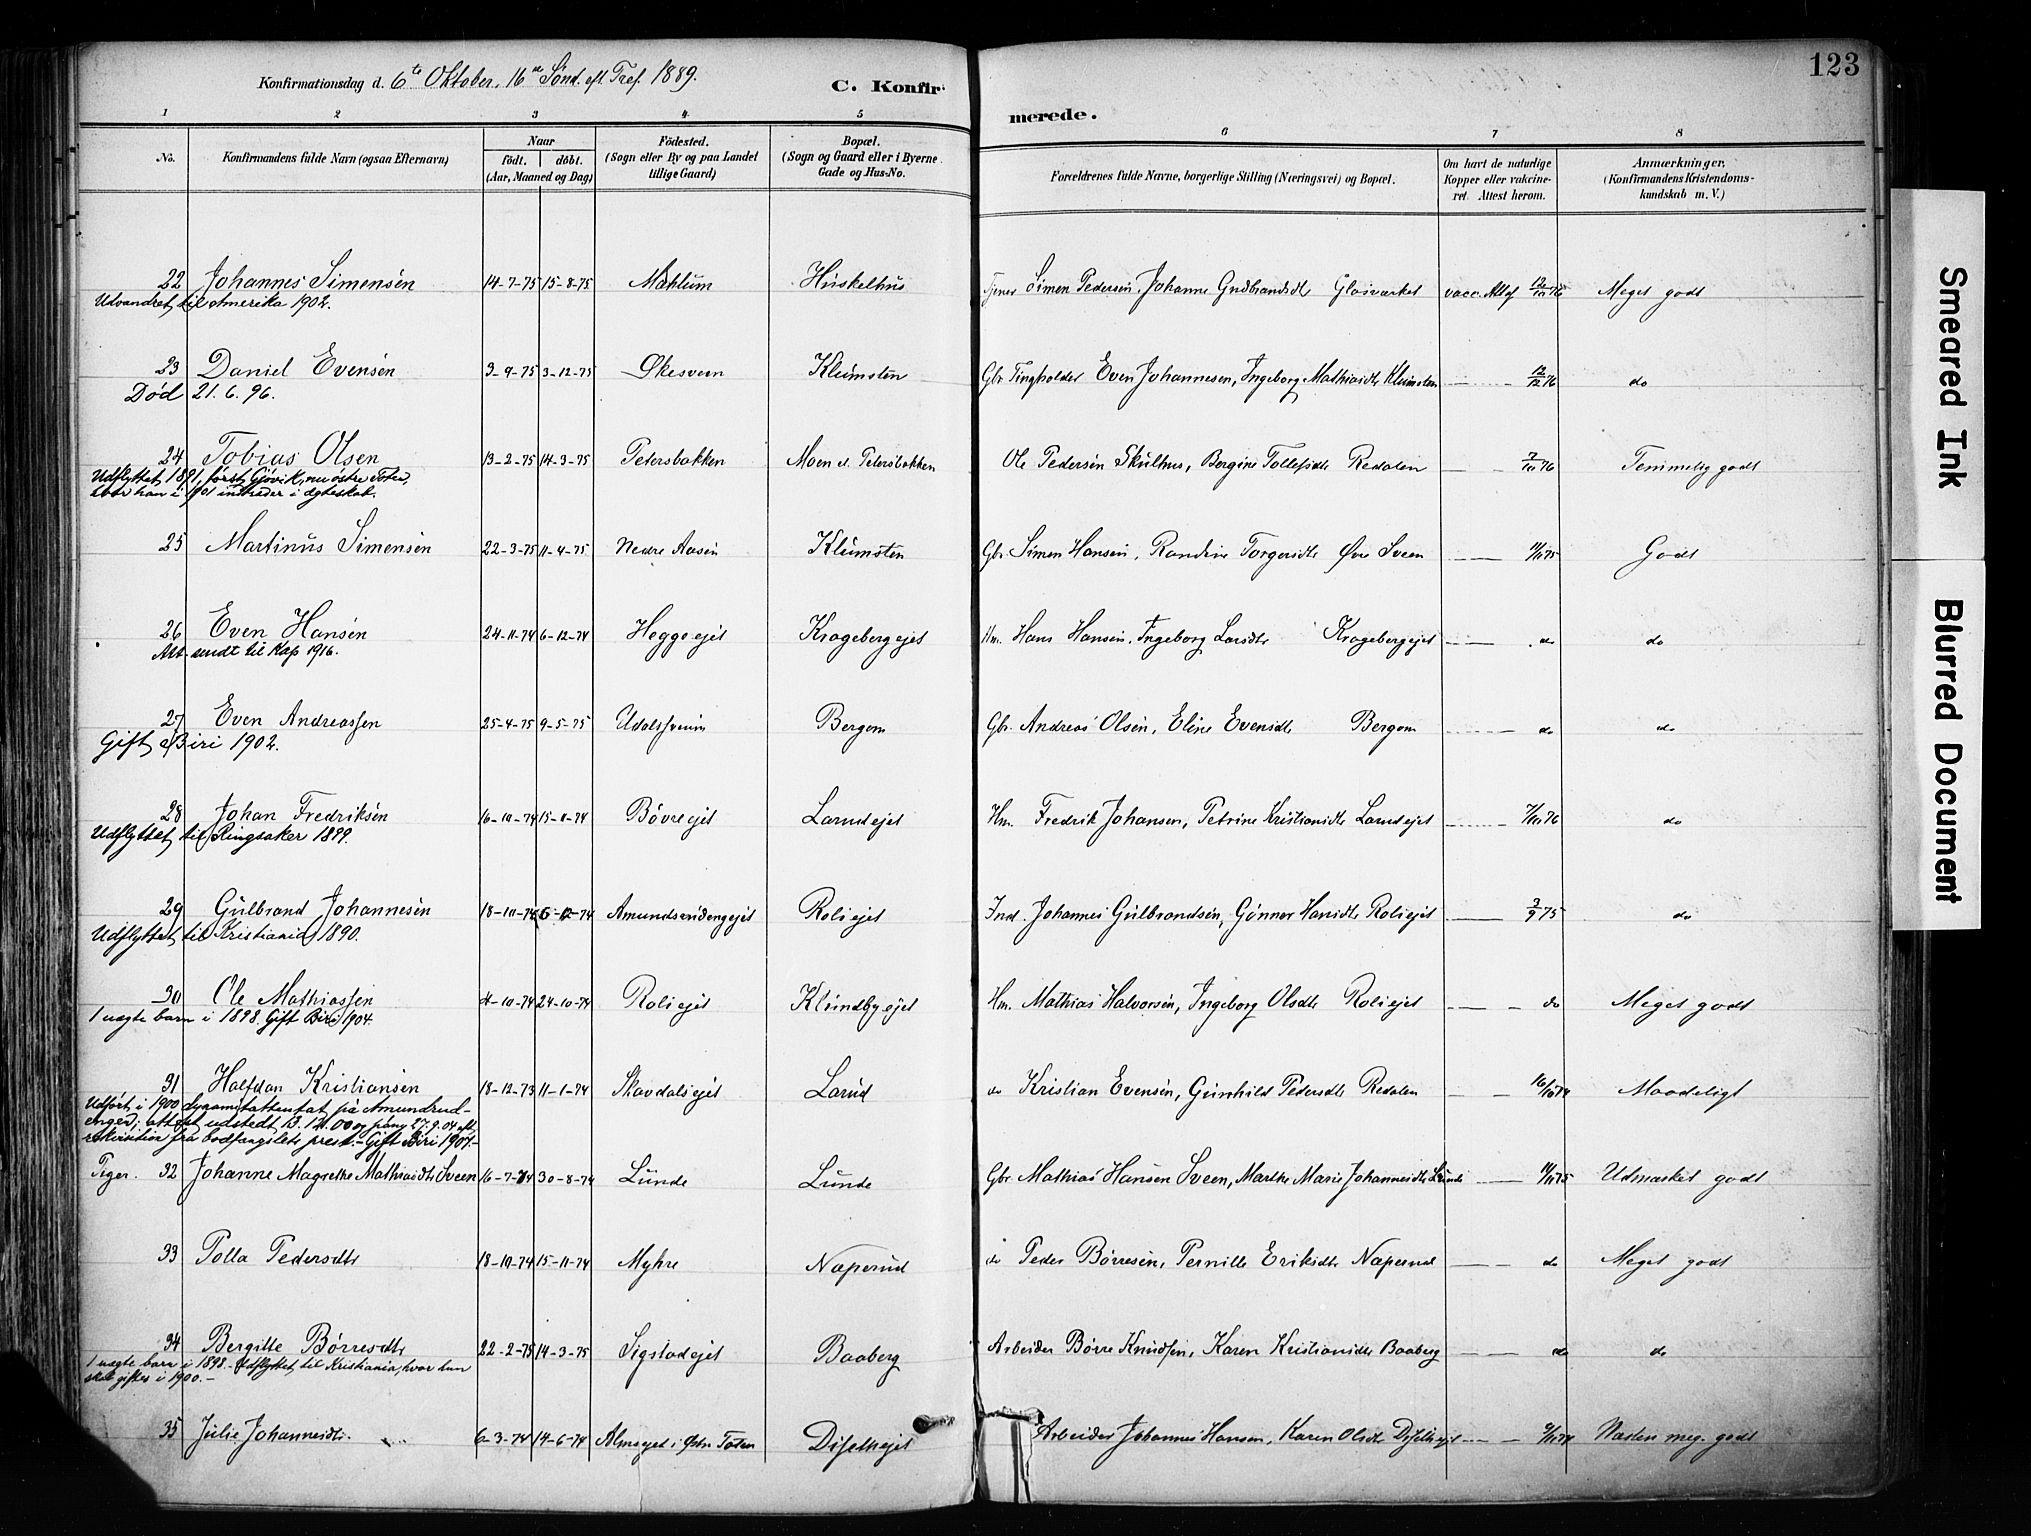 123
Konfirmationsdag d. 6te Oktober, 16de Sönd. eft. Tref. 1889.
C. Konfirmerede.
1 2 3 4 5 6 7 8
No.
Konfirmandens fulde Navn (ogsaa Efternavn)
Naar
födt. döbt.
(Aar, Maaned og Dag)
Födested.
(Sogn eller By og paa Landet
tillige Gaard)
Bopæl.
(Sogn og Gaard eller i Byerne
Gade og Hus-No.
Forældrenes fulde Navne, borgerlige Stilling (Næringsvei) og Bopæl.
Om havt de naturlige
Kopper eller vakcine-
ret. Attest herom.
Anmærkninger,
(Konfirmandens Kristendoms-
kundskab m. V.)
22 Johannes Simensen 14-7-75 15-8-75 Mæhlum Huskelhus Tjener Simen Pedersen, Johanne Gudbrandsdtr Glasværket vacc. Att af Meget godt
Udvandret til Amerika 1902.
23 Daniel Evensen 3-9-75 3-12-75 Økesveen Klumsten Gbr. Tingholder Even Johannesen, Ingeborg Mathiasdtr Klumsten 12/12 76 do
Død 21.6.96.
24 Tobias Olsen 13-2-75 14-3-75 Petersbakken Moen v. Petersbakken Ole Pedersen Skulhus, Bergine Tollefsdtr Redalen Temmelig godt
Udflyttet 1891, først Gjøvik, nu østre Toten,
hvor han i 1901 indtræder i ægteskab.
25 Martinus Simensen 22-3-75 11-4-75 Nedre Aasen Klumsten Gbr. Simen Hansen, Randine Torgersdtr Øvre Sveen 11/11 75 Godt
26 Even Hansen 24-11-74 6-12-74 Heggeejet Krageberg ejet Hm. Hans Hansen, Ingeborg Larsdtr Kragebergejet do do
Att. sendt til Kap 1916.
27 Even Andreassen 25-4-75 9-5-75 Bergom Gbr. Andreas Olsen, Eline Evensdtr Bergom do do
Gift Biri 1902.
28 Johan Fredriksen 16-10-74 15-11-74 Bövreejet Larudejet Hm. Fredrik Johansen, Petrine Kristiansdtr Larudejet do
Udflyttet til Ringsaker 1899.
29 Gulbrand Johannesen 18-10-74 Amundsrudengejet Roliejet Ind. Johannes Gulbrandsen, Gunnor Hansdtr Roliejet 3/9 75 do
Udflyttet til Kristiania 1890.
30 Ole Mathiassen 4-10-74 24-10-74 Roliejet Klundbyejet Hm. Mathias Halvorsen, Ingeborg Olsdtr Roliejet do Meget godt
1 uægte barn i 1898. Gift Biri 1904.
31 Halfdan Kristiansen 18-12-73 11-1-74 Skavdalsejet Larud do Kristian Evensen, Gunhild Pedersdtr Redalen Maadeligt
Udført i 1900 dynamitattentat på Amundrud-
enger; attest udstedt 13.12.00 og påny 27.9.04 eft.
rekvisition fra bodfængslets prest. - Gift Biri 1907. -
Piger. 32 Johanne Magrethe Mathiasdtr Sveen 16-7-74 30-8-74 Lunde Lunde Gbr. Mathias Hansen Sveen, Marthe Marie Johannesdtr Lunde 11/11 75 Udmærket godt
33 Polla Pedersdtr 18-10-74 15-11-74 Myhre Næperud do Peder Børresen, Pernille Eriksdtr Næperud do Meget godt
34 Bergitte Børresdtr 22-2-75 14-3-75 Sigstadejet Baaberg Arbeider Børre Knudsen, Karen Kristiansdtr Baaberg do do
1 uægte barn i 1898. Udflyttet til Kristiania, hvor hun
skal giftes i 1900. -
35 Julie Johannesdtr. 6-3-74 14-6-74 Almsejet i Østre Toten Disethejet Arbeider Johannes Hansen, Karen Olsdtr Disethejet Næsten meg. godt
Smeared Ink
Blurred Document